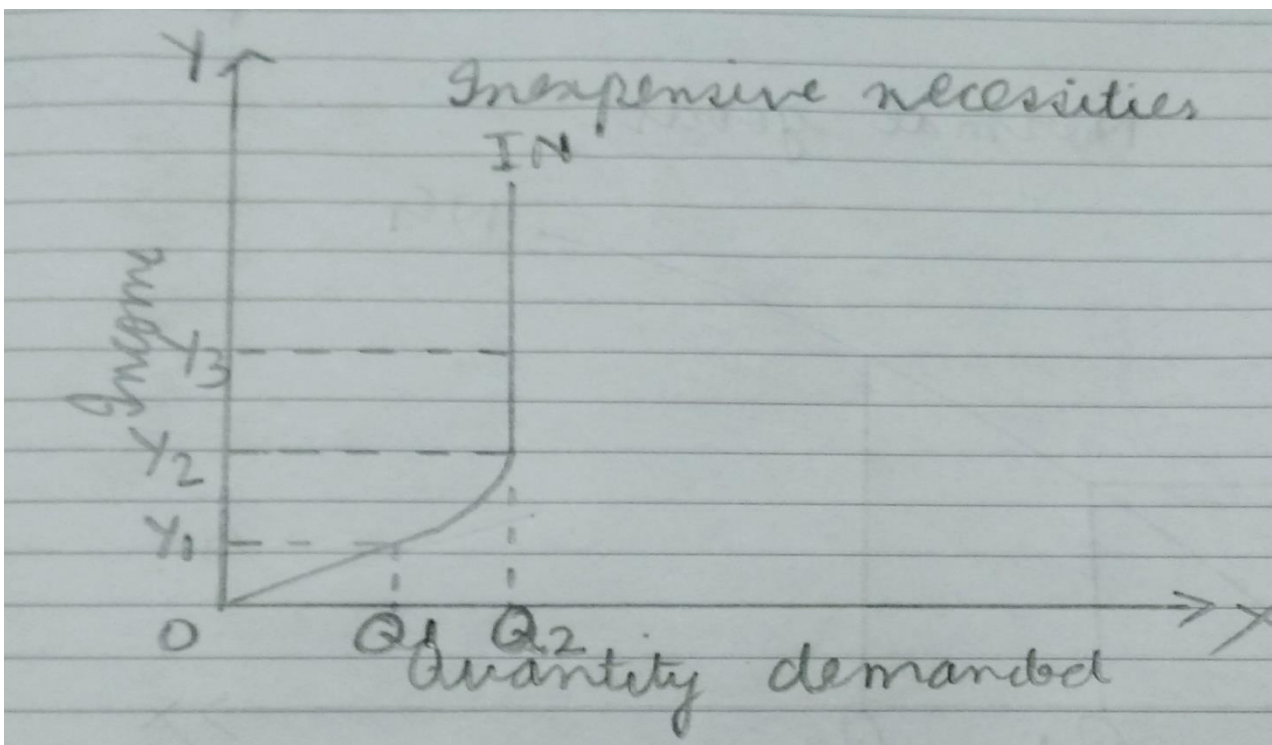 Y
Inexpensive necessities
IN
Income
Y3
Y2
Y1
O
Q1
Q2
X
Quantity demanded